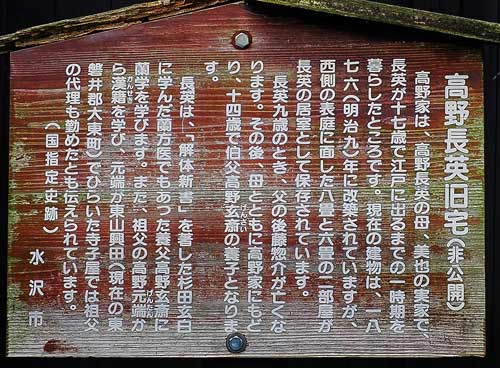 高野長英旧宅(非公開)
高野家は、高野長英の母、美也の実家で、
長英が十七歳で江戸に出るまでの一時期を
暮らしたところです。現在の建物は、一八
七六(明治九)年に改築されていますが、
西側の表庭に面した八畳と六畳の二部屋が
長英の居室として保存されています。
長英九歳のとき、父の後藤惣介が亡くな
ります。その後、母とともに高野家にもど
り、十四歳で伯父高野玄斎の養子となりま
す。
長英は、「解体新書」を著した杉田玄白
に学んだ蘭方医でもあった養父高野玄斎に
蘭学を学びます。また、祖父の高野元端か
ら漢籍を学び、元端が東山興田(現在の東
磐井郡大東町)でひらいた寺子屋では祖父
の代理も勤めたとも伝えられています。
(国指定史跡) 水沢市